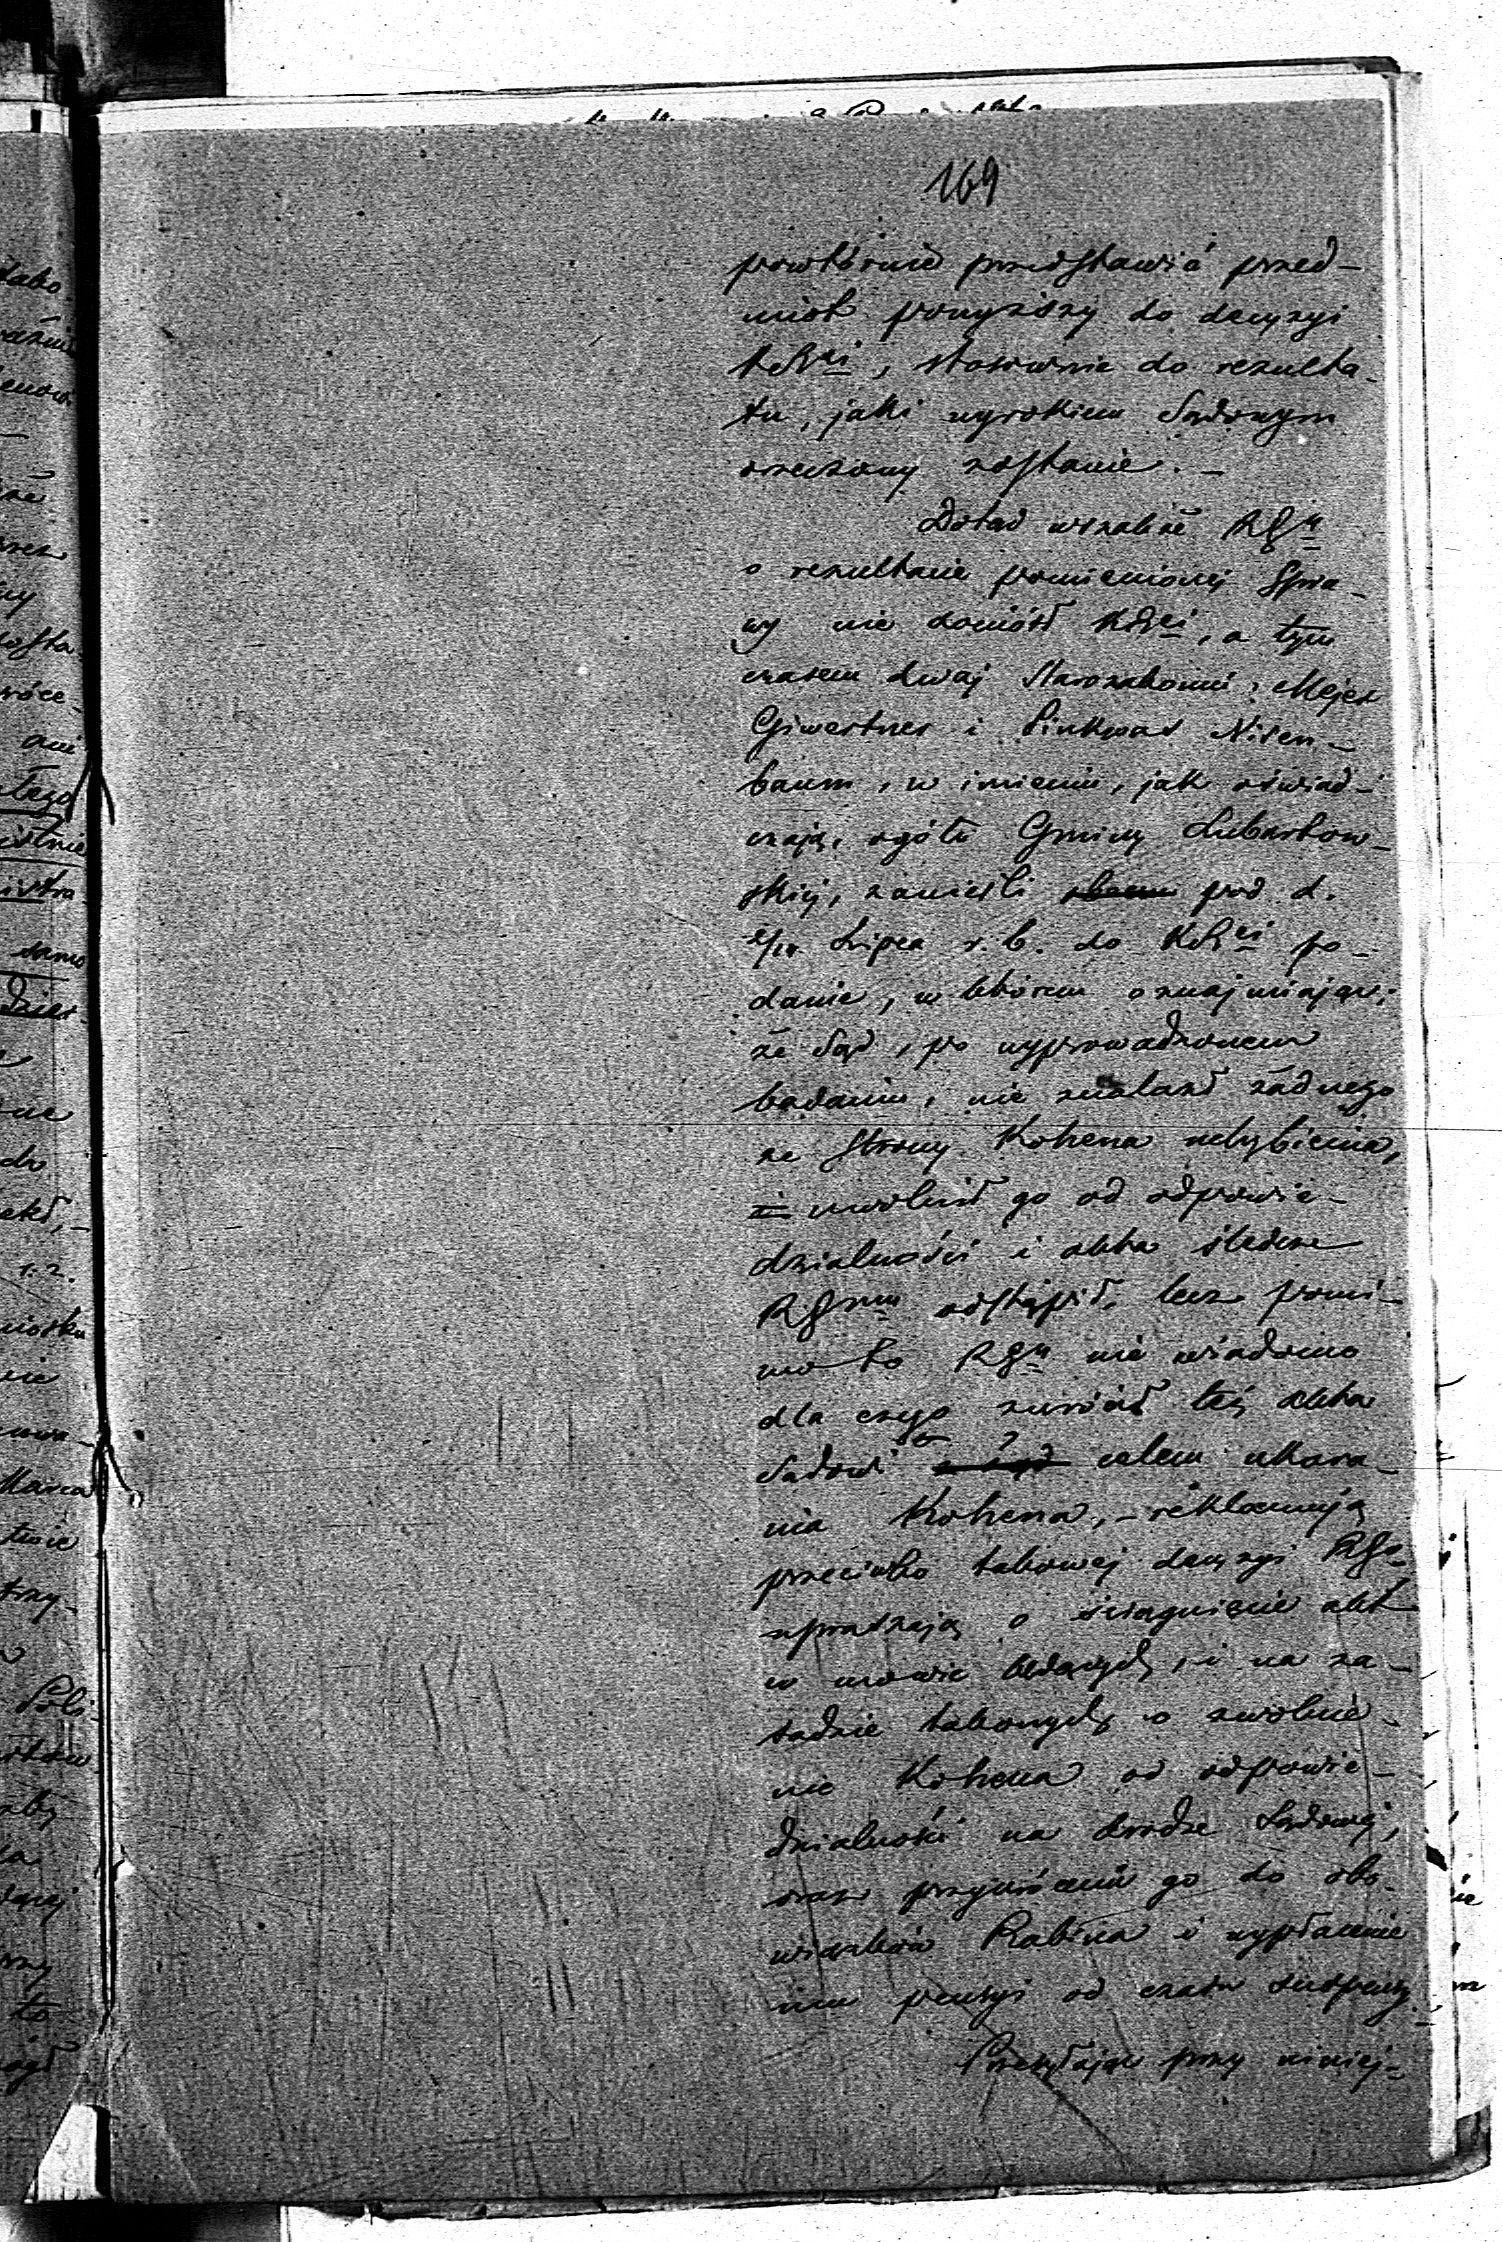 169
powtórnie przedstawić przed-
miot powyższy do decyzyi
KRSci, stosownie do rezulta-
tu, jaki wyrokiem Sądowym
orzeczony zostanie. -
Dotąd wszakże RGu
o rezultacie pomienionej Spra-
wy nie doniósł KRSci, a tym
czasem dwaj Starozakonni, Mejer
Giwertner i Pinkwas Nisen-
baum, w imieniu, jak oświad-
czają, ogółu Gminy Lubartow-
skiej, zanieśli pod d.
2/14 Lipca r. b. do KRSci po-
danie, w którem oznajmiając,
że Sąd, po wyprowadzonem
badaniu, nie znalazł żadnego
ze strony Kohena uchybienia,
i uwolnił go od odpowie-
dzialności i akta śledcze
RGmu odstąpił, lecz pomi-
mo to RGu nie wiadomo
dla czego zwrócił też akta
Sądowi celem ukara-
nia Kohena, - reklamują
przeciwko takowej decyzyi RGo
upraszają o ściągnięcie akt
w mowie będących, i na za-
sadzie takowych o zwolnie-
nie Kohena od odpowie-
dzialności na drodze Sądowej,
oraz przywrócenie go do obo-
wiązków Rabina i wypłacenie
mu pensyi od czasu suspensy. -
Przesyłając przy niniej-